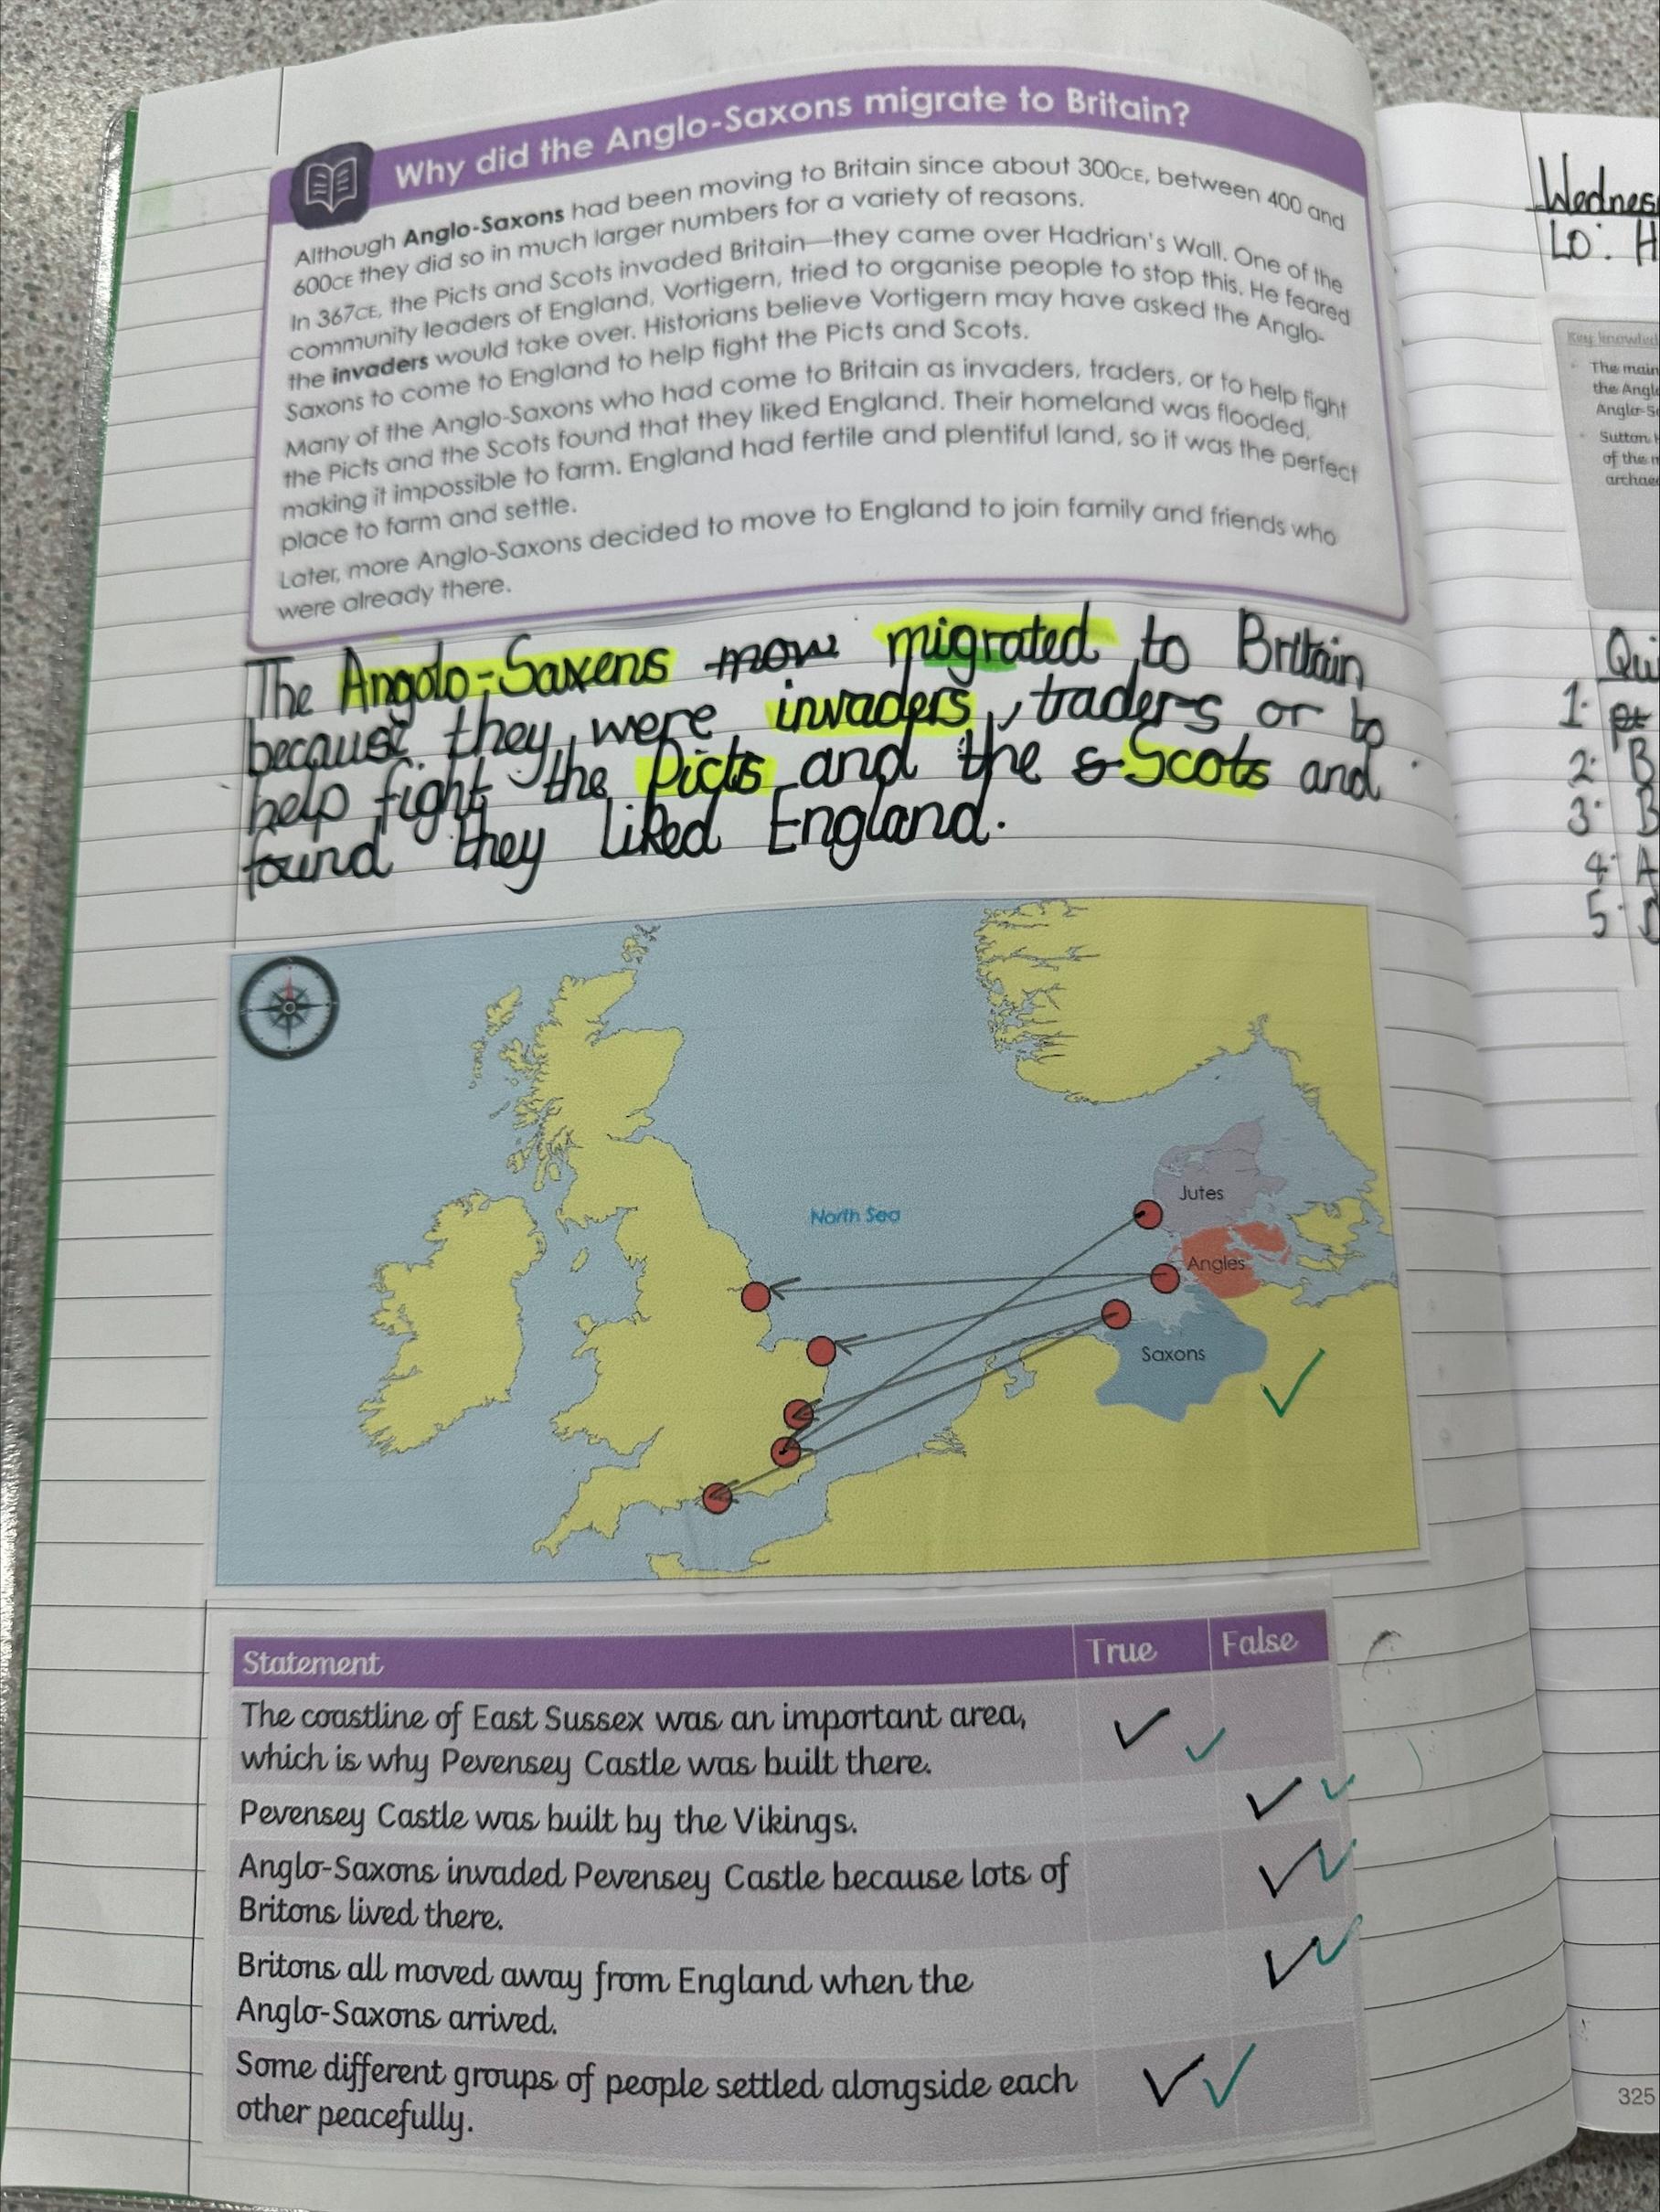 Why did the Anglo-Saxons migrate to Britain?
Although Anglo-Saxons had been moving to Britain since about 300CE, between 400 and
600CE they did so in much larger numbers for a variety of reasons.
In 367CE, the Picts and Scots invaded Britain—they came over Hadrian's Wall. One of the
community leaders of England, Vortigern, tried to organise people to stop this. He feared
the invaders would take over. Historians believe Vortigern may have asked the Anglo-
Saxons to come to England to help fight the Picts and Scots.
Many of the Anglo-Saxons who had come to Britain as invaders, traders, or to help fight
the Picts and the Scots found that they liked England. Their homeland was flooded,
making it impossible to farm. England had fertile and plentiful land, so it was the perfect
place to farm and settle.
Later, more Anglo-Saxons decided to move to England to join family and friends who
were already there.
The Angolo-Saxens move migrated to Britain
because they were invaders, traders or to
help fight the Picts and the s Scots and
found they liked England.
North Sea
Jutes
Angles
Saxons
Statement True False
The coastline of East Sussex was an important area,
which is why Pevensey Castle was built there.
Pevensey Castle was built by the Vikings.
Anglo-Saxons invaded Pevensey Castle because lots of
Britons lived there.
Britons all moved away from England when the
Anglo-Saxons arrived.
Some different groups of people settled alongside each
other peacefully.
Wednes
LO: H
Key knowled
The main
the Angl
Anglo-S
Sutton H
of the m
archae
Qui
1.
2. B
3. B
4. A
5. D
325